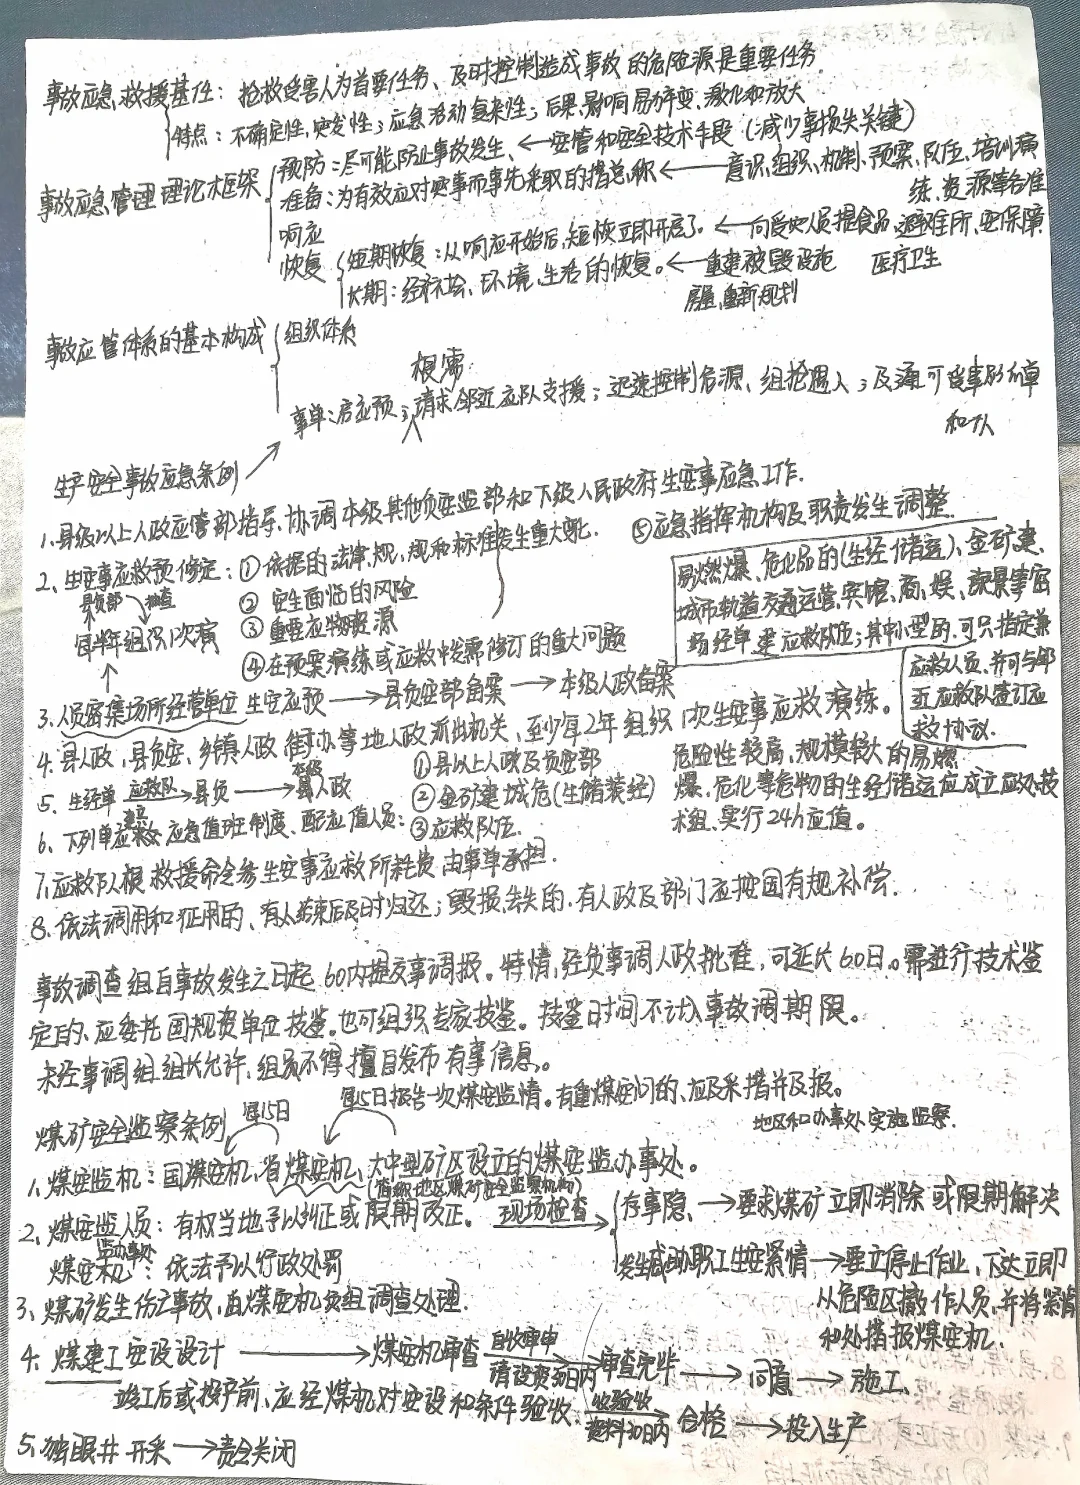 事故应急救援基任：抢救受害人为首要任务、及时控制造成事故的危险源是重要任务
特点：不确定性,突发性；应急活动复杂性；后果,影响易猝变、激化和放大
事故应急管理理论框架
预防：尽可能防止事故发生、←安管和安全技术手段（减少事损失关键）
准备：为有效应对突事而事先采取的措总称←意识、组织、机制、预案、队伍、培训演
练、资源等各准
响应
恢复
短期恢复：从响应开始后,短恢立即开启了。←向受灾人员提食品,避难所、安保障
医疗卫生
长期：经社会、环境、生活的恢复。←重建被毁设施
房屋,重新规划
事故应管体系的基本构成
组织体系
根需
事单：启应预；请求邻近应队支援；迅速控制危源、组抢遇人；及通可受事影的单
和人
生产安全事故应急条例
1、县级以上人政应管部指导、协调本级其他负安监部和下级人民政府生安事应急工作.
2、生安事应救预修定：①依据的法律规,规和标准发生重大变化.
⑤应急指挥机构及职责发生调整.
② 安生面临的风险
③ 重要应物资源
④在预案演练或应救中发需修订的重大问题
县负部 抽查
每半年组织1次演
易燃爆、危化品的(生经储运)、金矿建、
城市轨道交通运营、宾馆、商、娱、旅景等密
场经单,建应救队伍；其中小型的,可只指定兼
应救人员,并可与邻
近应救队签订应
救协议.
3、人员密集场所经营单位生安应预→县负安部备案→本级人政备案
4、县人政,县负安,乡镇人政街办等地人政派出机关、至少每2年组织1次生安事应救演练。
5、生经单 应救队→县负→本级县人政
6、下列单应建立应急值班制度、配应值人员：
①县以上人政及负安部
②金矿建城危(生储装经)
③应救队伍.
危险性较高,规模较大的易燃
爆、危化等危物的生经储运应成立应处技
术组,实行24h应值。
7、应救队根救援命令参生安事应救所耗费,由事单承担.
8、依法调用和征用的、有人结束后及时归还；毁损丢失的,有人政及部门应按国有规补偿.
事故调查组自事故发生之日起60内提交事调报。特情,经负事调人政批准,可延长60日。需进行技术鉴
定的、应委托国规资单位技鉴。也可组织专家技鉴。技鉴时间不计入事故调期限。
未经事调组组长允许,组员不得擅自发布有事信息。
煤矿安全监察条例
每15日
每15日报告一次煤安监情。有重煤安问的、应及采措并及报。
地区和办事处实施监察.
1、煤安监机：国煤安机、省煤安机、大中型矿区设立的煤安监办事处。
(省称地区煤矿安全监察机构)
2、煤安监人员：有权当地予以纠正或限期改正。现场检查
存事隐、→要求煤矿立即消除或限期解决
发生威胁职工生安紧情→要立停止作业,下达立即
从危险区撤作人员,并将紧情
和处措报煤安机.
监办事处
煤安机：依法予以行政处罚
3、煤矿发生伤亡事故,由煤安机负组调查处理.
4、煤建工安设设计→煤安机审查 自收审申请设资30日内 审查完毕→同意→施工、
竣工后或投产前、应经煤机对安设和条件验收、收验收资料30日内 合格→投入生产
5、独眼井开采→责令关闭